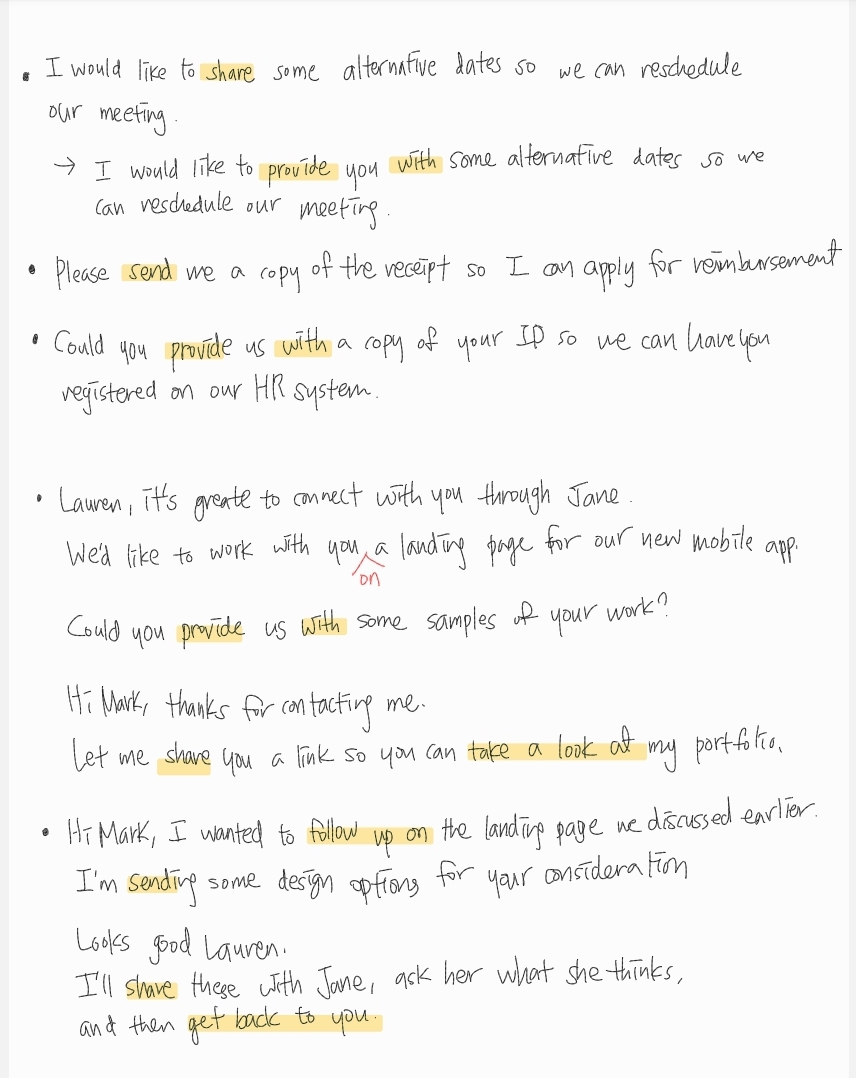 • I would like to share some alternative dates so we can reschedule
our meeting.
→ I would like to provide you with some alternative dates so we
can reschedule our meeting.
• Please send me a copy of the receipt so I can apply for reimbursement
• Could you provide us with a copy of your ID so we can have you
registered on our HR system.
• Lauren, it's greate to connect with you through Jane.
We'd like to work with you a landing page for our new mobile app.
on
Could you provide us with some samples of your work?
Hi Mark, thanks for contacting me.
Let me share you a link so you can take a look at my portfolio.
• Hi Mark, I wanted to follow up on the landing page we discussed earlier.
I'm sending some design options for your consideration
Looks good Lauren.
I'll share these with Jane, ask her what she thinks,
and then get back to you.